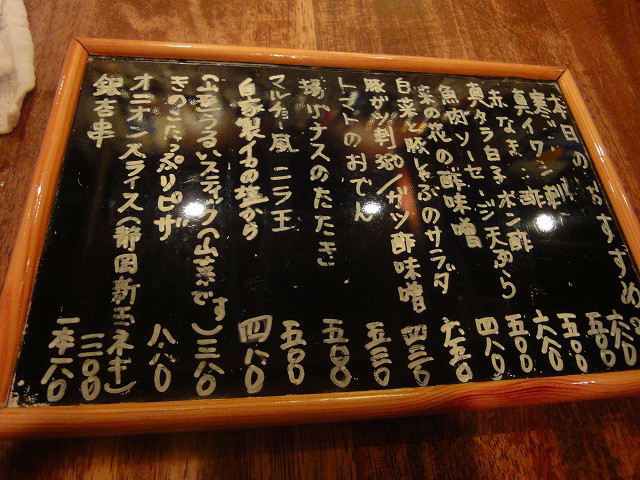 本日のおすすめ
寒ブリ刺 六〇〇
真イワシ刺 五〇〇
赤なまこ酢 五〇〇
真タラ白子ポン酢 六八〇
魚肉ソーセージ天ぷら 五〇〇
菜の花の酢味噌 四八〇
白菜と豚しゃぶのサラダ 六五〇
豚ガツ刺380/ガツ酢味噌 四三〇
トマトのおでん 五三〇
揚げナスのたたき 五〇〇
マルチョー風ニラ玉 五〇〇
自家製イカの塩から 四八〇
山菜うるいスティック(山菜です) 三八〇
きのこたっぷりピザ 八八〇
オニオンスライス(静岡新玉ネギ) 三〇〇
銀杏串 一本一八〇